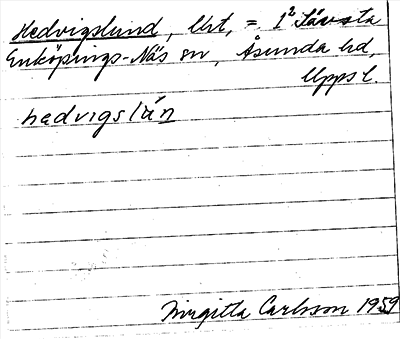 Hedvigslund, lht, = 1² Tävsta
Enköpings-Näs sn, Åsunda hd,
Upps l.
hedvigslún
Birgitta Carlsson 1959